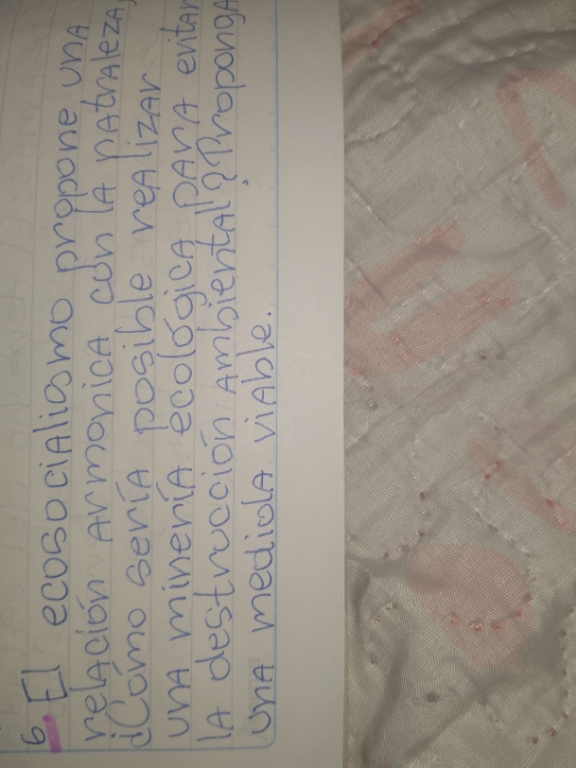 6. El ecosocialismo propone una
relación armonica con la naturaleza,
¿Cómo sería posible realizar
una minería ecológica para evitar
la destrucción ambiental? Proponga
una medida viable.